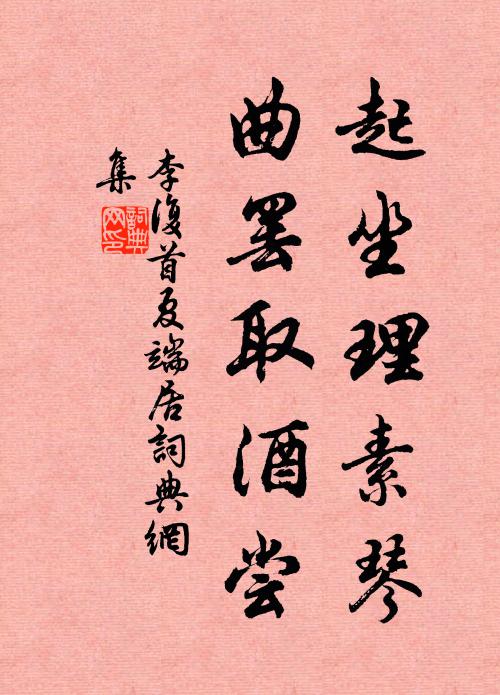 起坐理素琴
曲罢取酒尝
李復首夏端居詞典網
集
詞典
网印